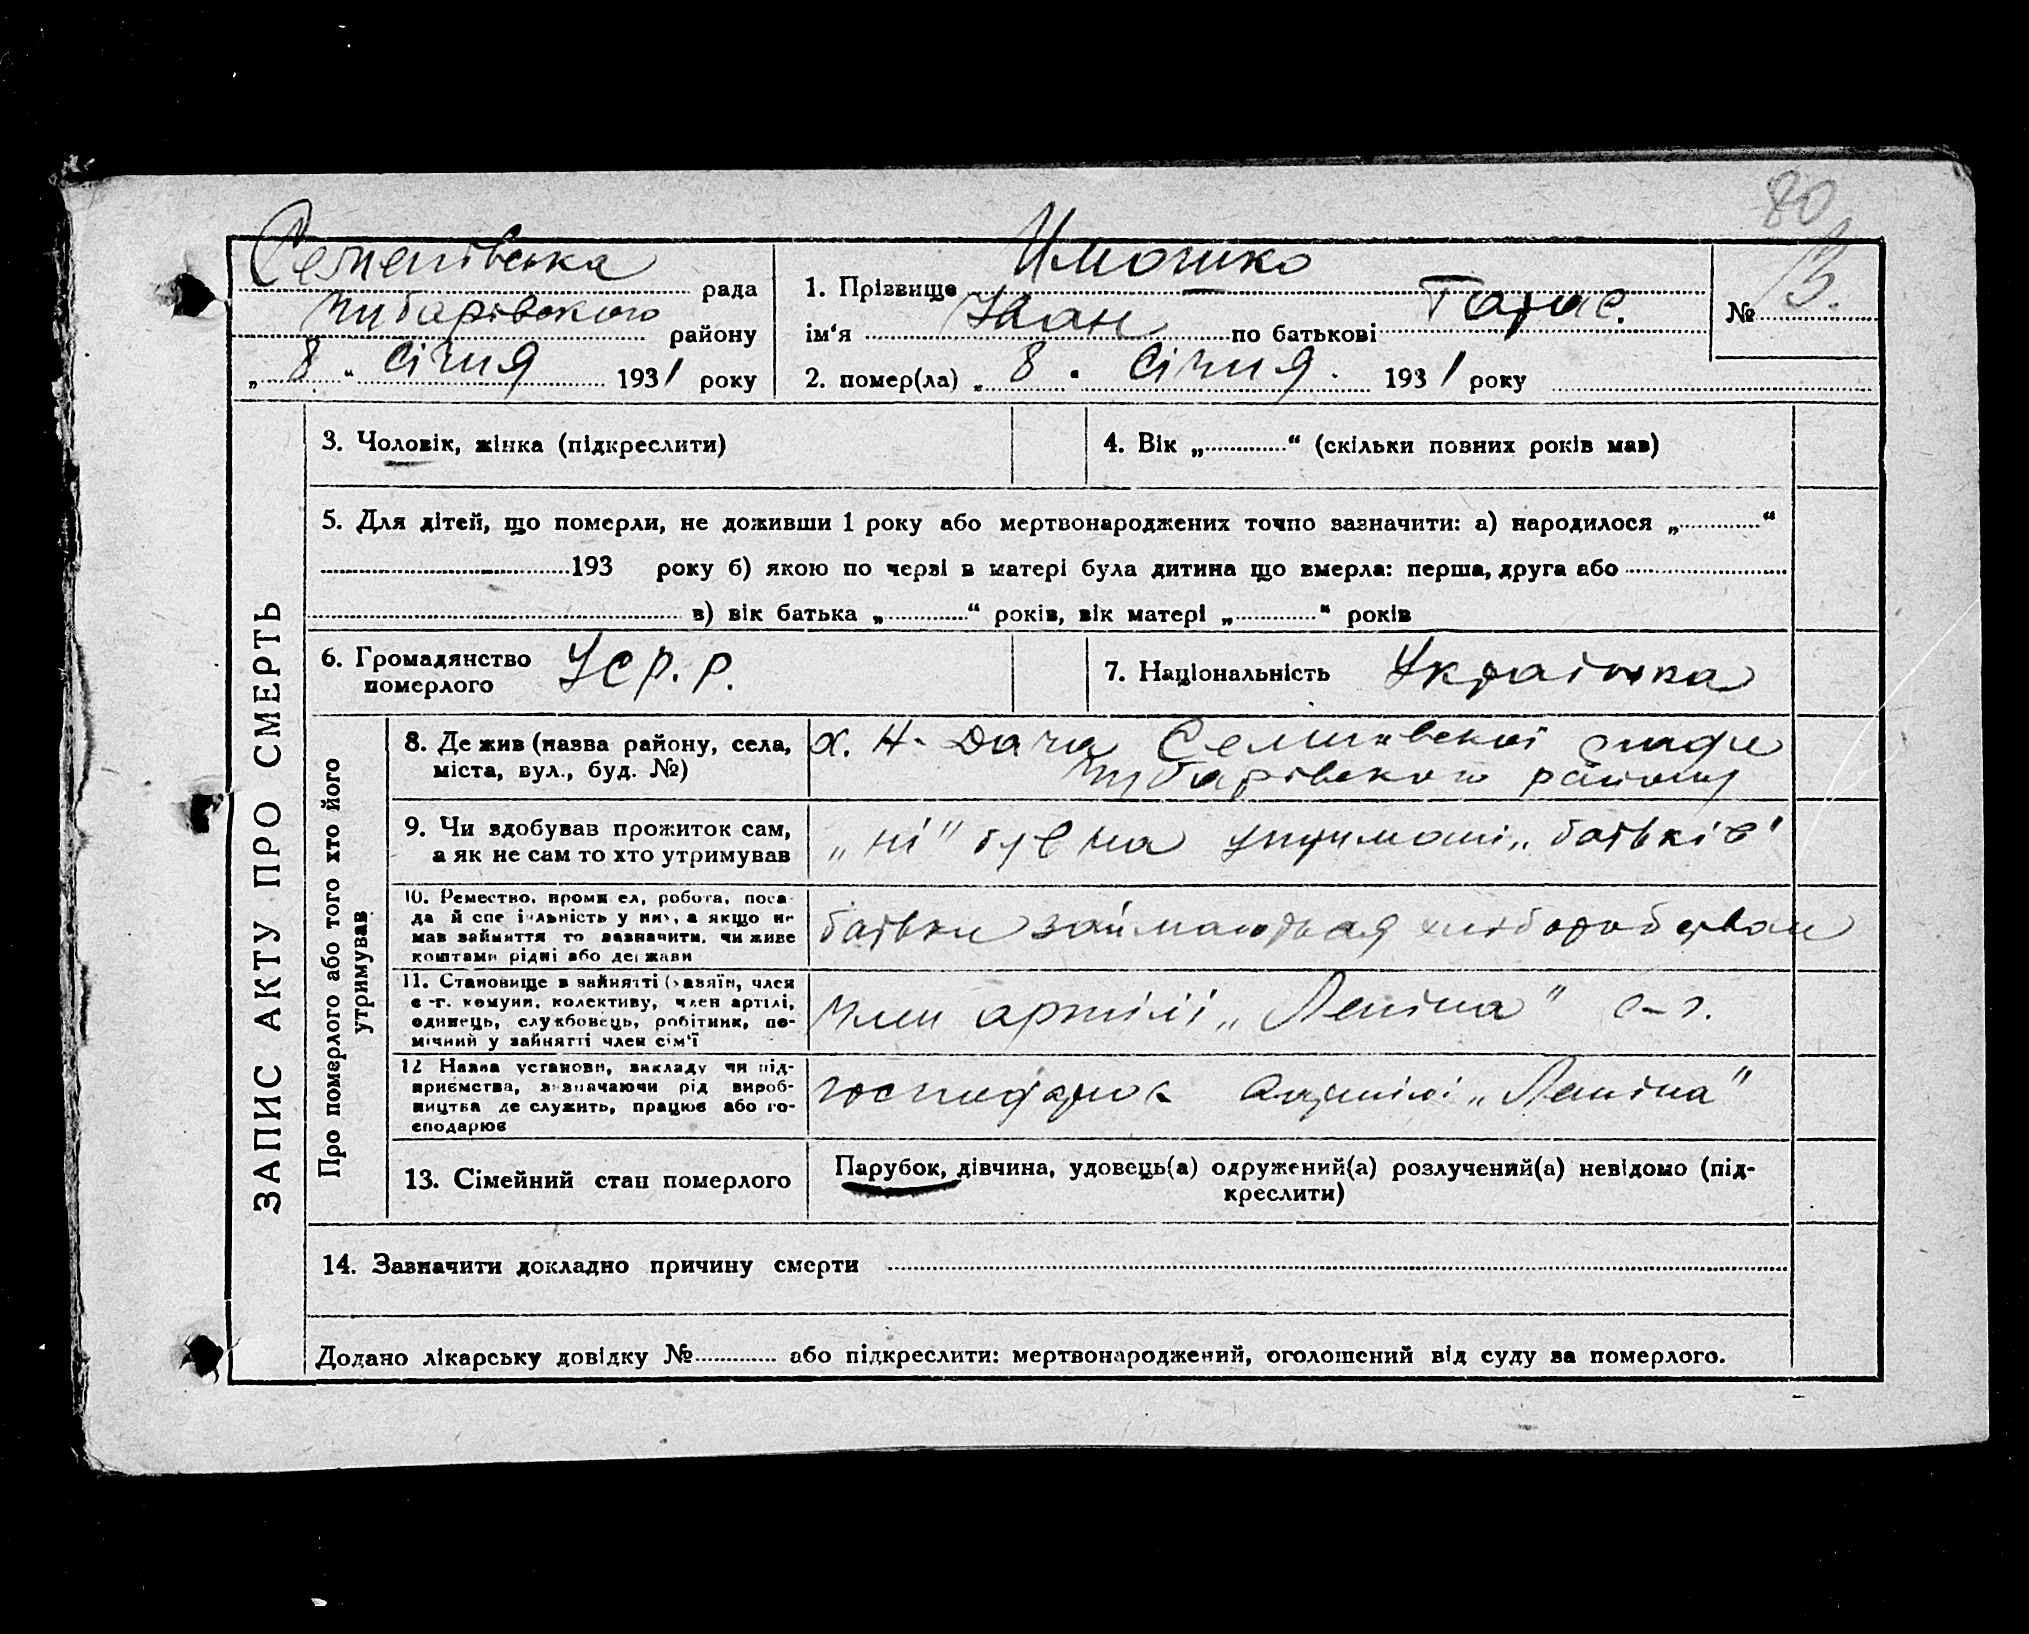 80
Семенівська рада
Чубарівського району
„ 8 “ Січня 1931 року
1. Прізвище Имошко
ім‘я Іван по батькові Тарас.
№ 13.
2. помер(ла) „ 8 “ Січня. 1931 року
ЗАПИС АКТУ ПРО СМЕРТЬ
3. Чоловік, жінка (підкреслити)
4. Вік „ “ (скільки повних років мав)
5. Для дітей, що померли, не доживши 1 року або мертвонароджених точно зазначити: а) народилося „ “
193 року б) якою по черзі в матері була дитина що вмерла: перша, друга або
в) вік батька „ “ років, вік матері „ “ років
6. Громадянство
померлого УСР.Р.
7. Національність Українка
Про померлого або того хто його
утримував
8. Де жив (назва району, села,
міста, вул., буд. №)
х. Н-Дача Семенівської ради
Чубарівського району
9. Чи здобував прожиток сам,
а як не сам то хто утримував
„ні" був на утримані „батьків"
10. Ремество, промисел, робота, поса-
да й спеціяльність у них, а якщо не
мав зайняття то зазначити, чи живе
коштами рідні або держави
батьки займаються хліборобством
11. Становище в зайнятті (хазяїн, член
с-г. комуни, колективу, член артілі,
одинець, службовець, робітник, по-
мічний у зайнятті член сім'ї
Член артілі „Леніна" с-г.
12 Назва установи, закладу чи під-
приємства, взначаючи рід вироб-
ництва де служить, працює або го-
сподарює
артілі „Леніна"
13. Сімейний стан померлого
Парубок, дівчина, удовець(а) одружений(а) розлучений(а) невідомо (під-
креслити)
14. Зазначити докладно причину смерти
Додано лікарську довідку № або підкреслити: мертвонароджений, оголошений від суду за померлого.